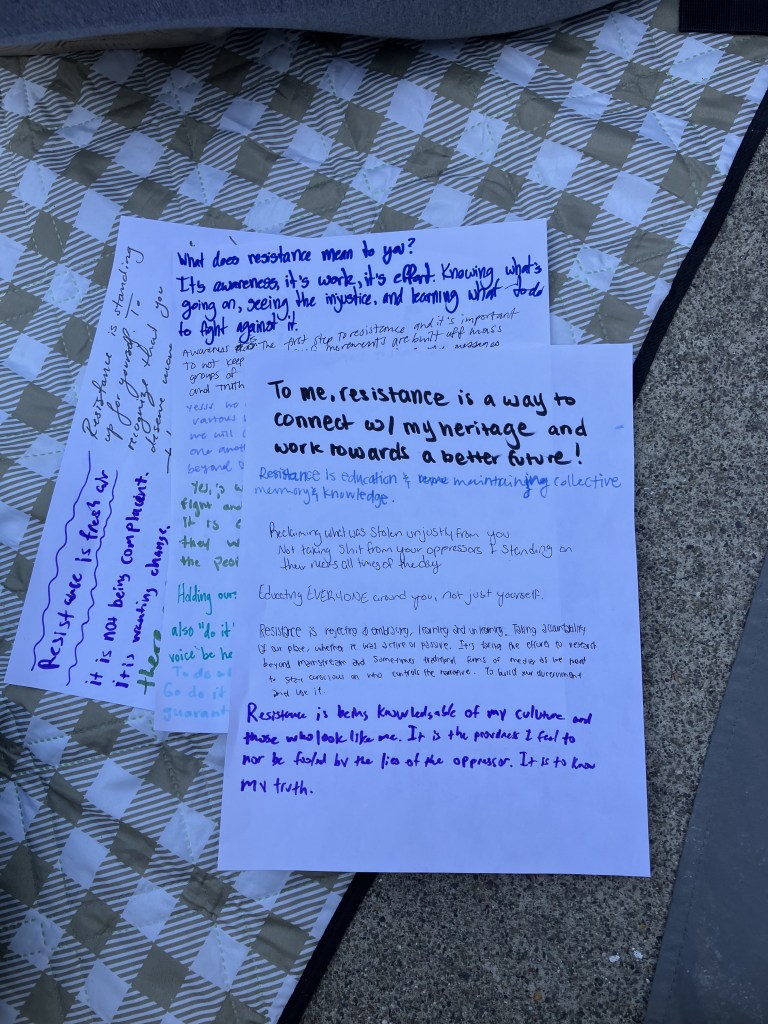 What does resistance mean to you?
It's awareness, it's work, it's effort. Knowing what's
going on, seeing the injustice, and learning what to do
to fight against it.
Awareness the first step to resistance and it's important
To not keep movements are built off mass
groups of
and truth
various
one anoth
beyond
Yes,
fight and
It is
they w
the
Holding our
also "do it"
voice be he
To do
Go do it
guarant
Resistance is standing
up for yourself. To
recognize that you
deserve more
Resistance is fresh air
it is not being complacent.
it is wanting change.
To me, resistance is a way to
connect w/ my heritage and
work towards a better future!
Resistance is education & maintaining collective
memory & knowledge.
Reclaiming what was stolen unjustly from you
Not taking shit from your oppressors & standing on
their necks all times of the day
Educating EVERYONE around you, not just yourself.
Resistance is rejecting & embracing, learning and unlearning. Taking accountability
of our place, whether it was active or passive. It's taking the efforts to research
beyond mainstream and sometimes traditional forms of media as we need
to stay conscious on who controls the narrative. To build your discernment
and use it.
Resistance is being knowledgable of my culuture and
those who look like me. It is the proudness I feel to
nor be fooled by the lies of the oppressor. It is to know
my truth.